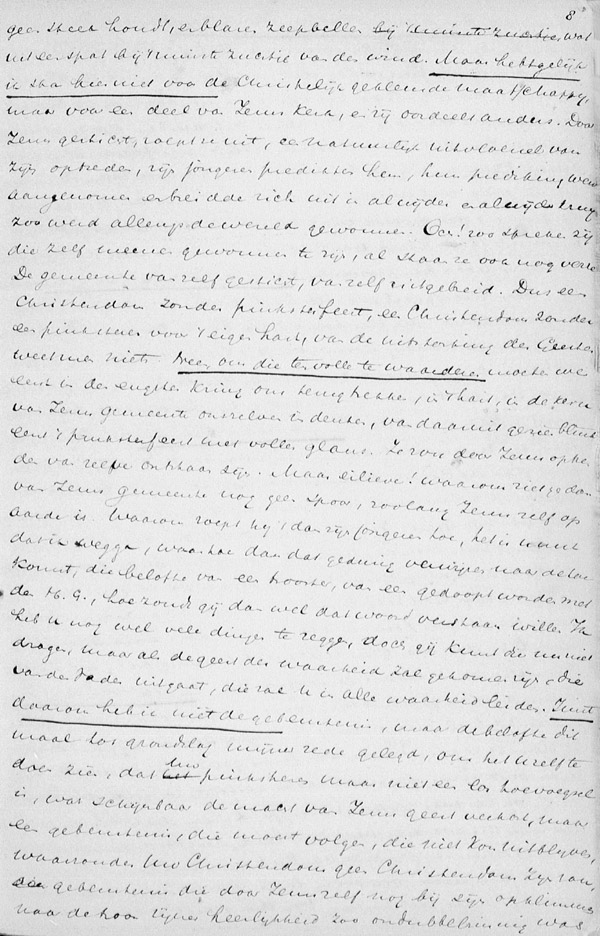 8
geen steek houdt, enblare zeepbellen bij 't minste zuchtje, wat
uit een spat bij 't minste zuchtje van den wind. Maar hebt gelijk
ik sta hier niet voor de Christelijk gekleurde maatschappij,
maar voor een deel van Jezus Kerk, en zij oordeelt anders. Door
Jezus gesticht, roept ze uit, een natuurlijk uitvloeisel van
zijn optreden, zijn jongeren predikten hem, hun prediking werd
aangenomen en breidde zich uit in al wijder en al wijder kring
zoo werd allengs de wereld gewonnen. Och! zoo spreken zij
die zelf meenen gewonnen te zijn, al staan ze ook nog verre
De gemeente van zelf gesticht, van zelf uitgebreid. Dus een
Christendom zonder pinksterfeest, een Christendom zonder
een pinksteren voor 't eigen hart, van de uitstorting des Geestes
weet men niets. Neen, om die ten volle te waarderen, moeten we
eerst in den engsten kring ons terugtrekken, in 't hart, in de kern
van Jezus gemeente onszelven in denken, van daar uit gezien blinkt
eerst 't pinksterfeest met vollen glans. Ze zou door Jezus optre
den van zelve ontstaan zijn. Maar eilieve! waarom ziet ge dan
van Jezus gemeente nog geen spoor, zoolang Jezus zelf op
aarde is. Waarom roept hij dan zijn jongeren toe, het is u nut
dat ik wegga, waartoe dan dat gedurig verwijzen naar de toe
komst, die belofte van een trooster, van een gedoopt worden met
den H. G., hoe zoudt gij dan wel dat woord verstaan willen Ik
heb u nog wel vele dingen te zeggen, doch gij kunt die nu niet
dragen, maar als de geest der waarheid zal gekomen zijn, die
van den Vader uitgaat, die zal u in alle waarheid leiden. Juist
daarom heb ik niet de gebeurtenis, maar de belofte dit
maal tot grondslag mijner rede gelegd, om het u zelf te
doen zien, dat het uw pinksteren maar niet een los toevoegsel
is, wat schijnbaar de macht van Jezus geest verhoogt, maar
een gebeurtenis, die moest volgen, die niet kon uitblijven,
waarzonder uw Christendom geen Christendom zijn zou,
een gebeurtenis die door Jezus zelf nog bij zijn opklimmen
naar de troon zijner heerlijkheid zoo ondubbelzinnig was